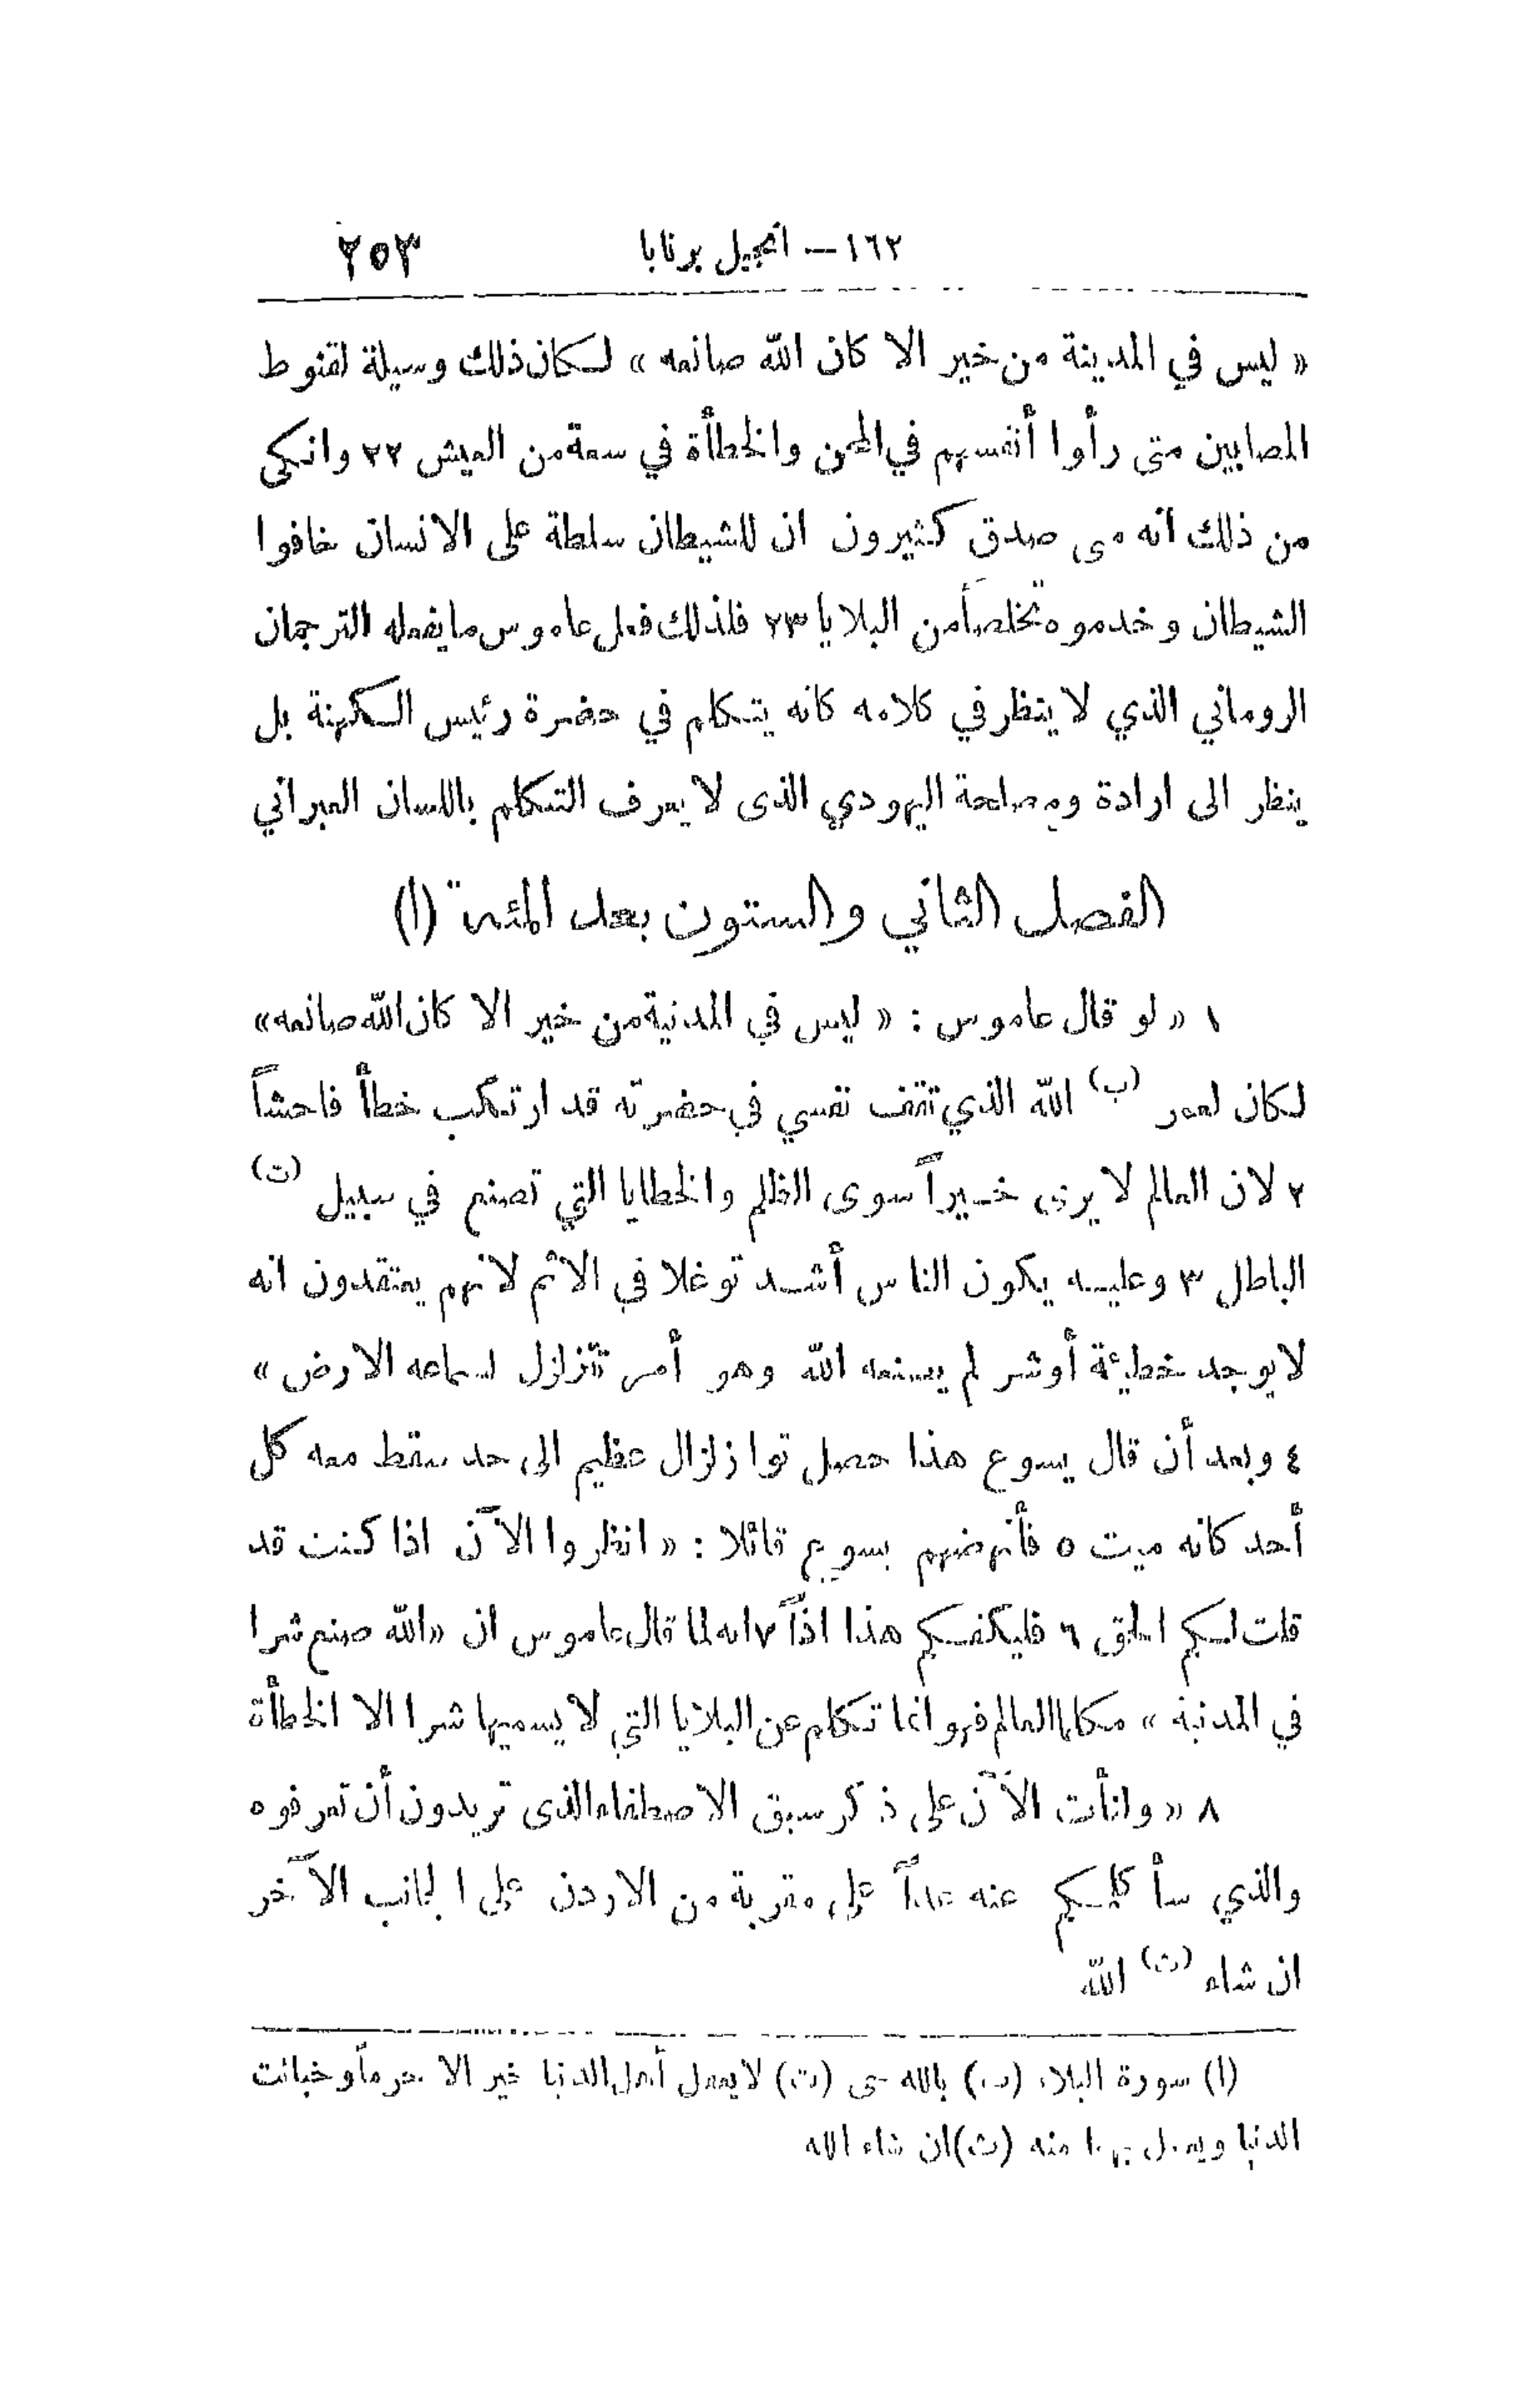 ١٦٢ — انجيل برنابا ٢٥٣
« ليس في المدينة من خير الا كان الله صانعه » لكان ذلك وسيلة لقنوط
المصابين متى رأوا أنفسهم في المحن والخطأة في سعة من العيش ٢٢ وانكى
من ذلك انه متى صدق كثيرون ان للشيطان سلطة على الانسان خافوا
الشيطان وخدموه تخلصاً من البلايا ٢٣ فلذلك فعل عاموس ما يفعله الترجمان
الروماني الذي لا ينظر في كلامه كانه يتكلم في حضرة رئيس الكهنة بل
ينظر الى ارادة ومصلحة اليهودي الذى لا يعرف التكلم باللسان العبراني
الفصل الثاني والستون بعد المئة (ا)
١ « لو قال عاموس : « ليس في المدنية من خير الا كان الله صانعه »
لكان لعمر (ب) الله الذي تقف نفسي في حضرته قد ارتكب خطأ فاحشاً
٢ لان العالم لا يرى خيراً سوى الظلم والخطايا التي تصنع في سبيل (ت)
الباطل ٣ وعليه يكون الناس أشد توغلا في الاثم لانهم يعتقدون انه
لا يوجد خطيئة أو شر لم يصنعه الله وهو أمر تتزلزل لسماعه الارض »
٤ وبعد أن قال يسوع هذا حصل توا زلزال عظيم الى حد سقط معه كل
أحد كانه ميت ٥ فأنهضهم يسوع قائلا : « انظروا الآن اذا كنت قد
قلت لكم الحق ٦ فليكفكم هذا اذاً ٧ انه لما قال عاموس ان « الله صنع شرا
في المدنية » مكلما العالم فهو انما تكلم عن البلايا التي لا يسميها شرا الا الخطأة
٨ « ولنأت الآن على ذكر سبق الاصطفاء الذى تريدون أن تعرفوه
والذي سأكلمكم عنه غداً على مقربة من الاردن على الجانب الآخر
ان شاء (ث) الله
(ا) سورة البلاء (ب) بالله حى (ت) لا يعمل أهل الدنيا خير الا حرماً وخبائت
الدنيا ويعمل بهما منه (ث) ان شاء الله